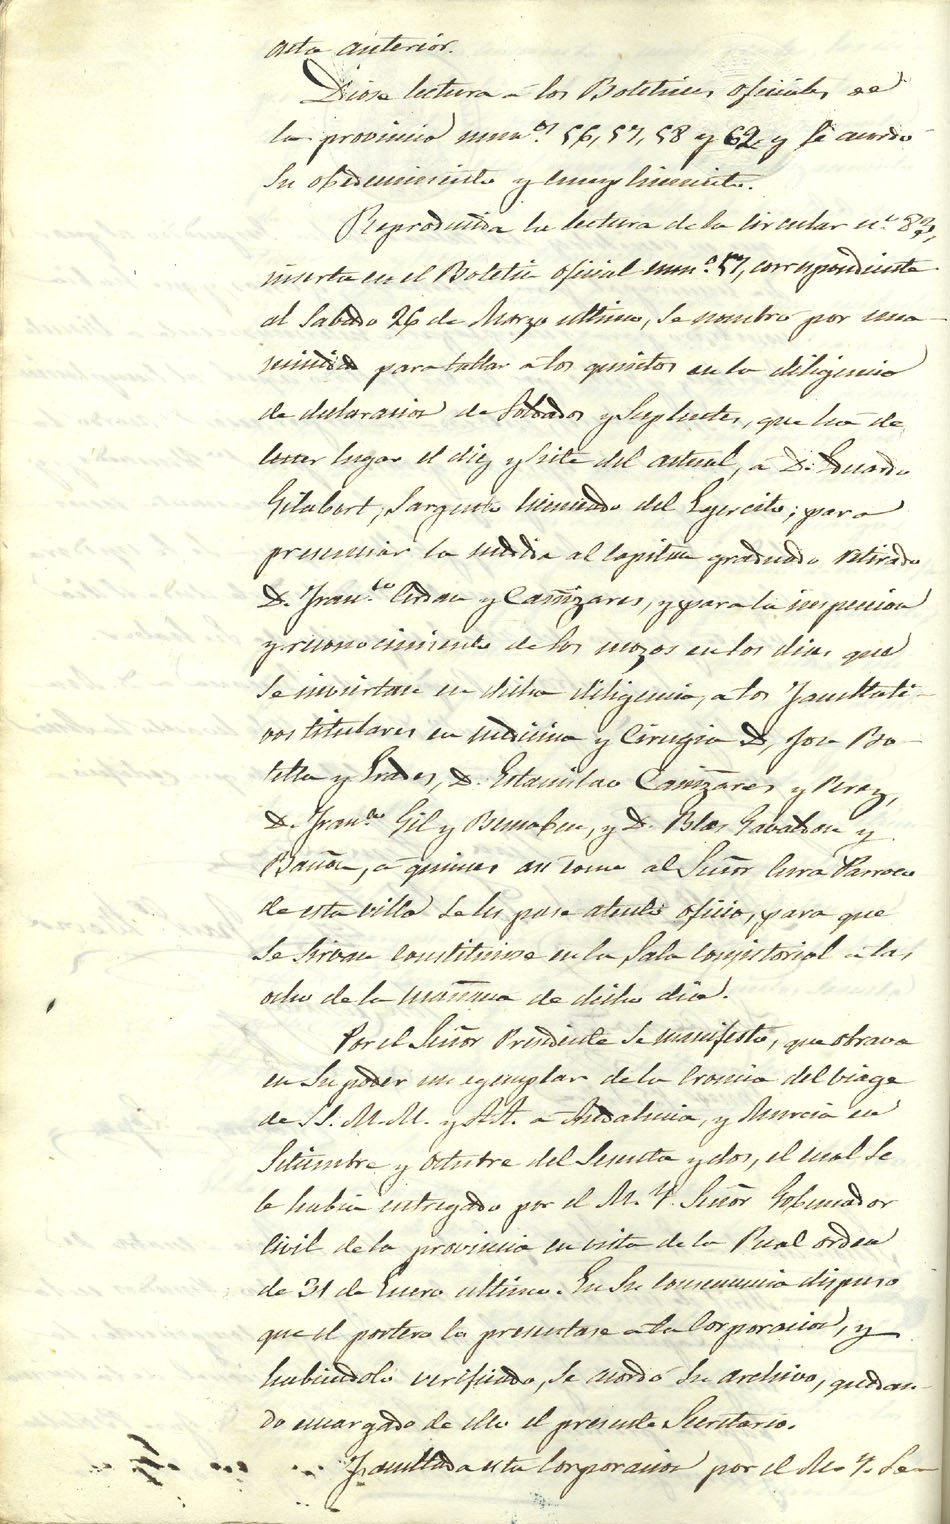 acta anterior.
Diose lectura á los Boletines oficiales de
la provincia numos 56, 57, 58 y 62 y se acordó
su obedecimiento y cumplimiento.
Reproducida la lectura de la circular n.º
inserta en el Boletin oficial num.º 57, correspondiente
al Sabado 26 de Marzo ultimo, se nombró por una-
nimidad para tallar á los quintos en la diligencia
de declaracion de Soldados y Suplentes, que há de
tener lugar el diez y siete del actual, á D. Eduardo
Gilabert, Sargento licenciado del Egercito; para
presenciar la medida al Capitan graduado retirado
D. Franco Cerdan y Cañizares, y para la inspeccion
y reconocimiento de los mozos en los dias que
se inviertan en dicha diligencia, á los Facultati-
vos titulares en medicina y Cirugia D. Jose Bo-
tella y Prades, D. Estanislao Cañizares y Perez,
D. Franco Gil y Bernabeu, y D. Blas Gavaldon y
Bañon, á quienes asi como al Señor Cura Parroco
de esta villa se les pase atento oficio, para que
se sirvan constituirse en la Sala Consistorial á las
ocho de la mañana de dicho dia.
Por el Señor Presidente se manifestó, que obrava
en su poder un egemplar de la Cronica del viage
de SS. M.M. y AA. á Andalucia, y Murcia en
Setiembre y Octubre del Sesenta y dos, el cual se
le habia entregado por el M. Y. Señor Gobernador
Civil de la provincia en vista de la Real orden
de 31 de Enero ultimo. En su consecuencia dispuso
que el portero lo presentase á la Corporacion, y
habiendolo verificado, se acordó su archivo, quedan-
do encargado de ello el presente Secretario.
Facultada esta Corporacion por el M. Y. Se-